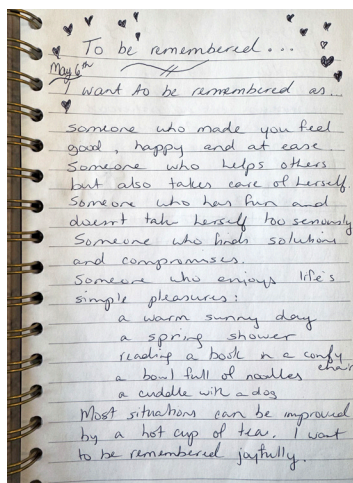 To be remembered...
May 6th
I want to be remembered as...
Someone who made you feel
good, happy and at ease
Someone who helps others
but also takes care of herself.
Someone who has fun and
doesn't take herself too seriously
Someone who finds solutions
and compromises.
Someone who enjoys life's
simple pleasures:
a warm sunny day
a spring shower
reading a book in a comfy chair
a bowl full of noodles
a cuddle with a dog
Most situations can be improved
by a hot cup of tea. I want
to be remembered joyfully.